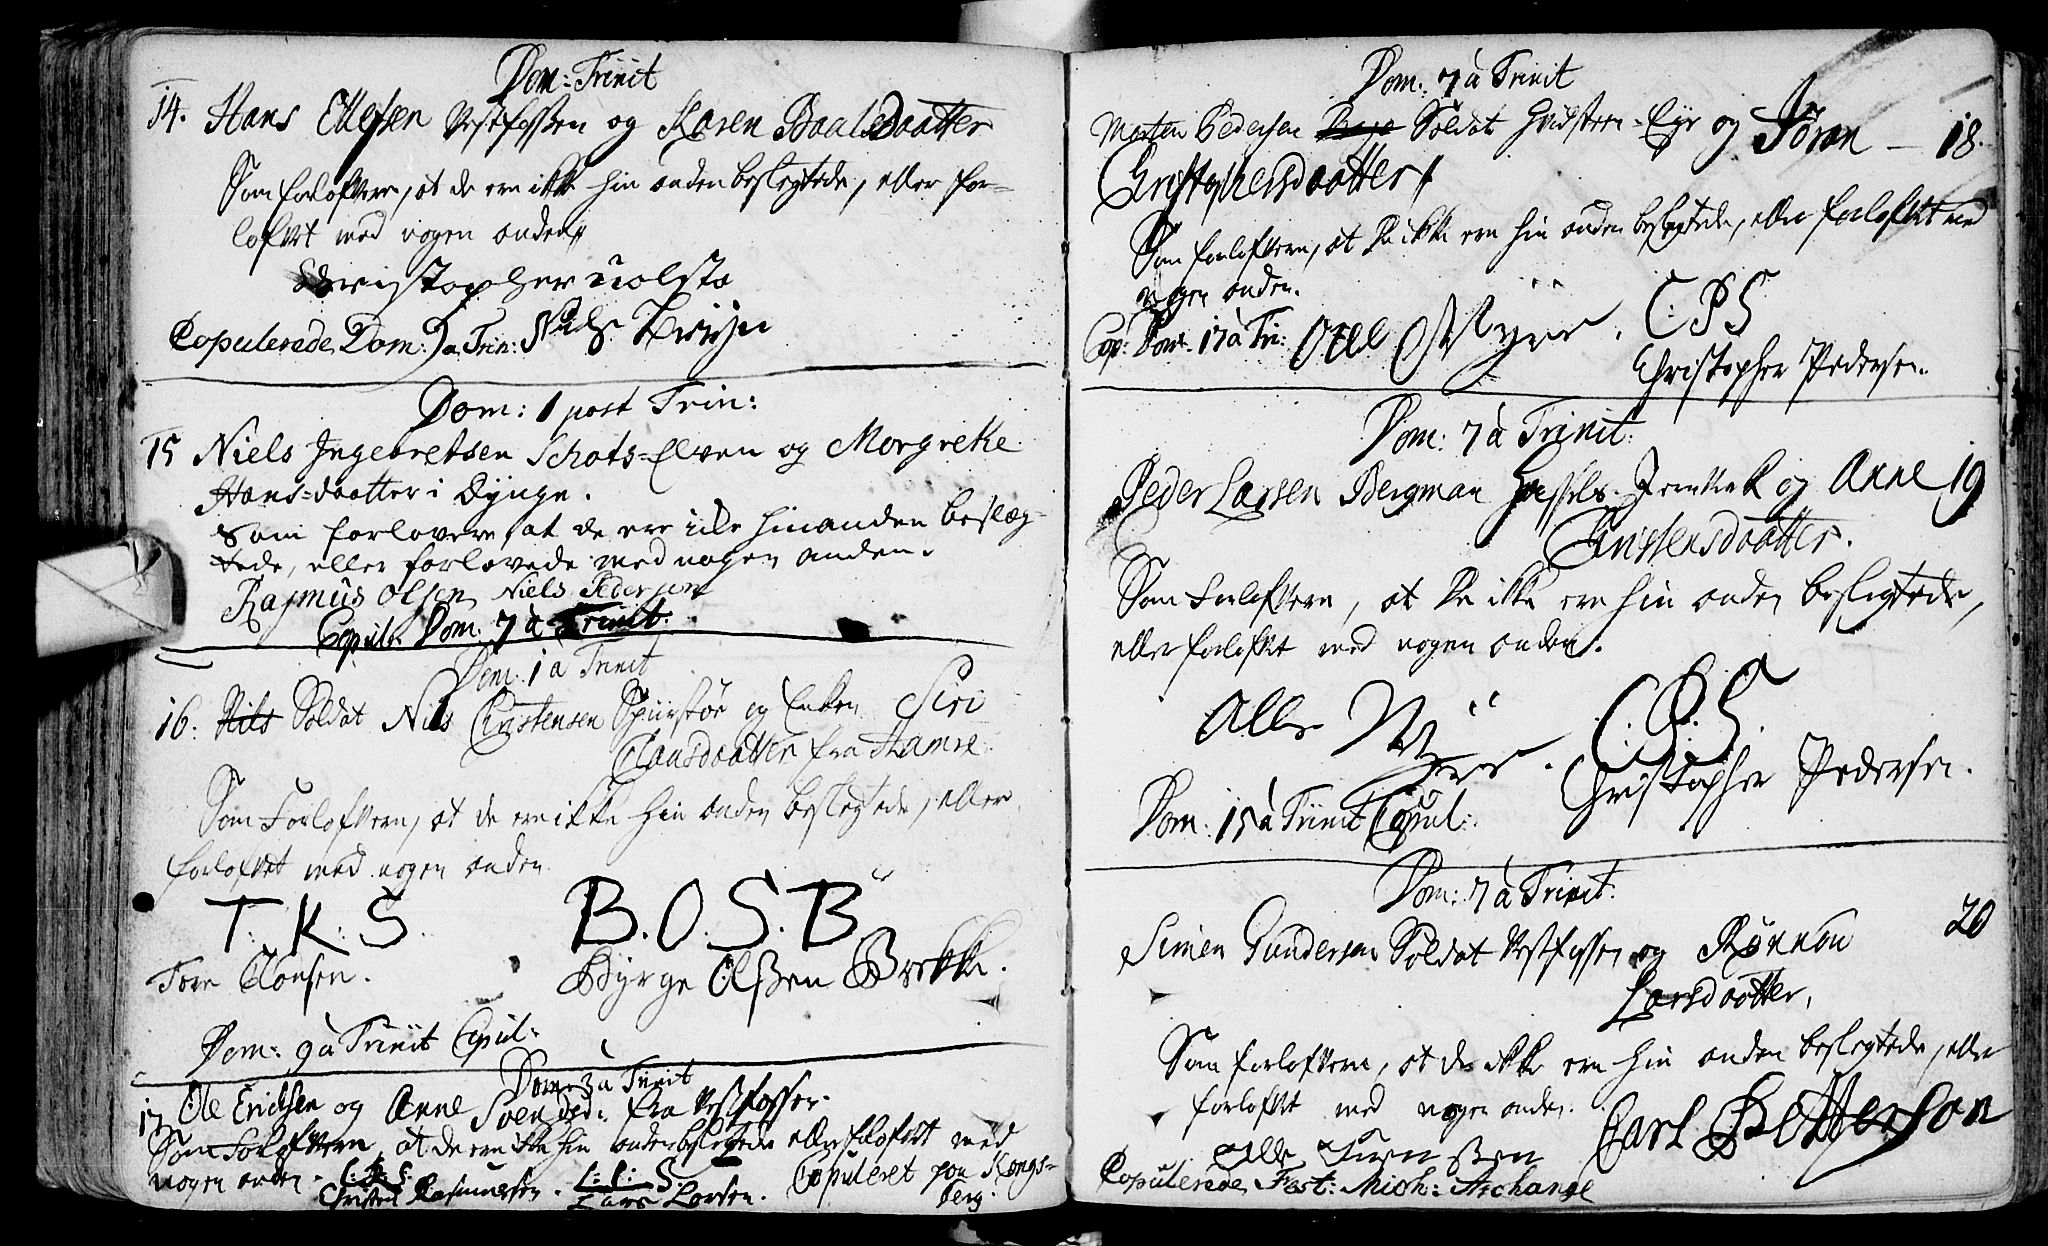 Dom: Trinit
14. Hans Ellefsen Vestfossen og Karen Baalsdaatter
Som forlofvere, at de ere ikke hin anden beslegtede, eller for-
lofvet med nogen anden
Christopher
Copulerede Dom: 9 a Trin: Niels
Dom: 1 post Trin:
15 Niels Ingebretsen Schots-Elven og Margrete
Hans-daatter i Dynge.
Som forlovere, at de ere icke hinanden beslæg-
tede, eller forlovede med nogen anden.
Rasmus Olsen Niels Pedersen
Copul: Dom. 7 a Trinit.
Dom. 1 a Trinit
16. Nils Soldat Nils Christensen og Enken Siri
Clausdaatter fra Hamre.
Som Forlofvere, at de ere ikke hin anden beslegtede, eller
forlofvet med nogen anden
T. K: S. B. O. S. B
Tore Byrge Olssen Brekke.
Dom: 9 a Trinit Copul:
Dom: 3 a Trinit
17 Ole Erichsen og Anne Svensdd: fra Vestfossen.
Som Forlofvere, at de ere ikke hin anden beslegtede eller forlofvet med
nogen anden. C: R: S: L: L: S. Copuleret paa Kongs-
Christen Rasmussen. Lars Larsen. berg.
Dom: 7 a Trinit
Morten Pedersen Soldat Hvidsteen-Eyr og Jöran – 18.
Christophersdaatter
Som forlofvere, at De ikke ere hin anden beslegtede, eller forlofvet med
nogen anden.
Cop: Dom. 17 a Tri: C: P S
Christopher Pedersen.
Dom: 7 a Trinit:
Peder Larsen Bergman Hassels-Jernverk og Anne 19
Christensdaatter.
Som Forlofvere, at De ikke ere hin anden beslegtede,
eller forlofvet med nogen anden.
C: P: S.
Christopher Pedersen.
Dom: 15 a Trinit Copul:
Dom: 7 a Trinit:
Simen Gundersen Soldat Vestfossen og Rönnou 20
Larsdaatter,
Som forlofvere, at de ikke ere hin anden beslegtede, eller
forlofvet med nogen anden.
Carl Petterson
Copulerede Fest: Mich: Archange